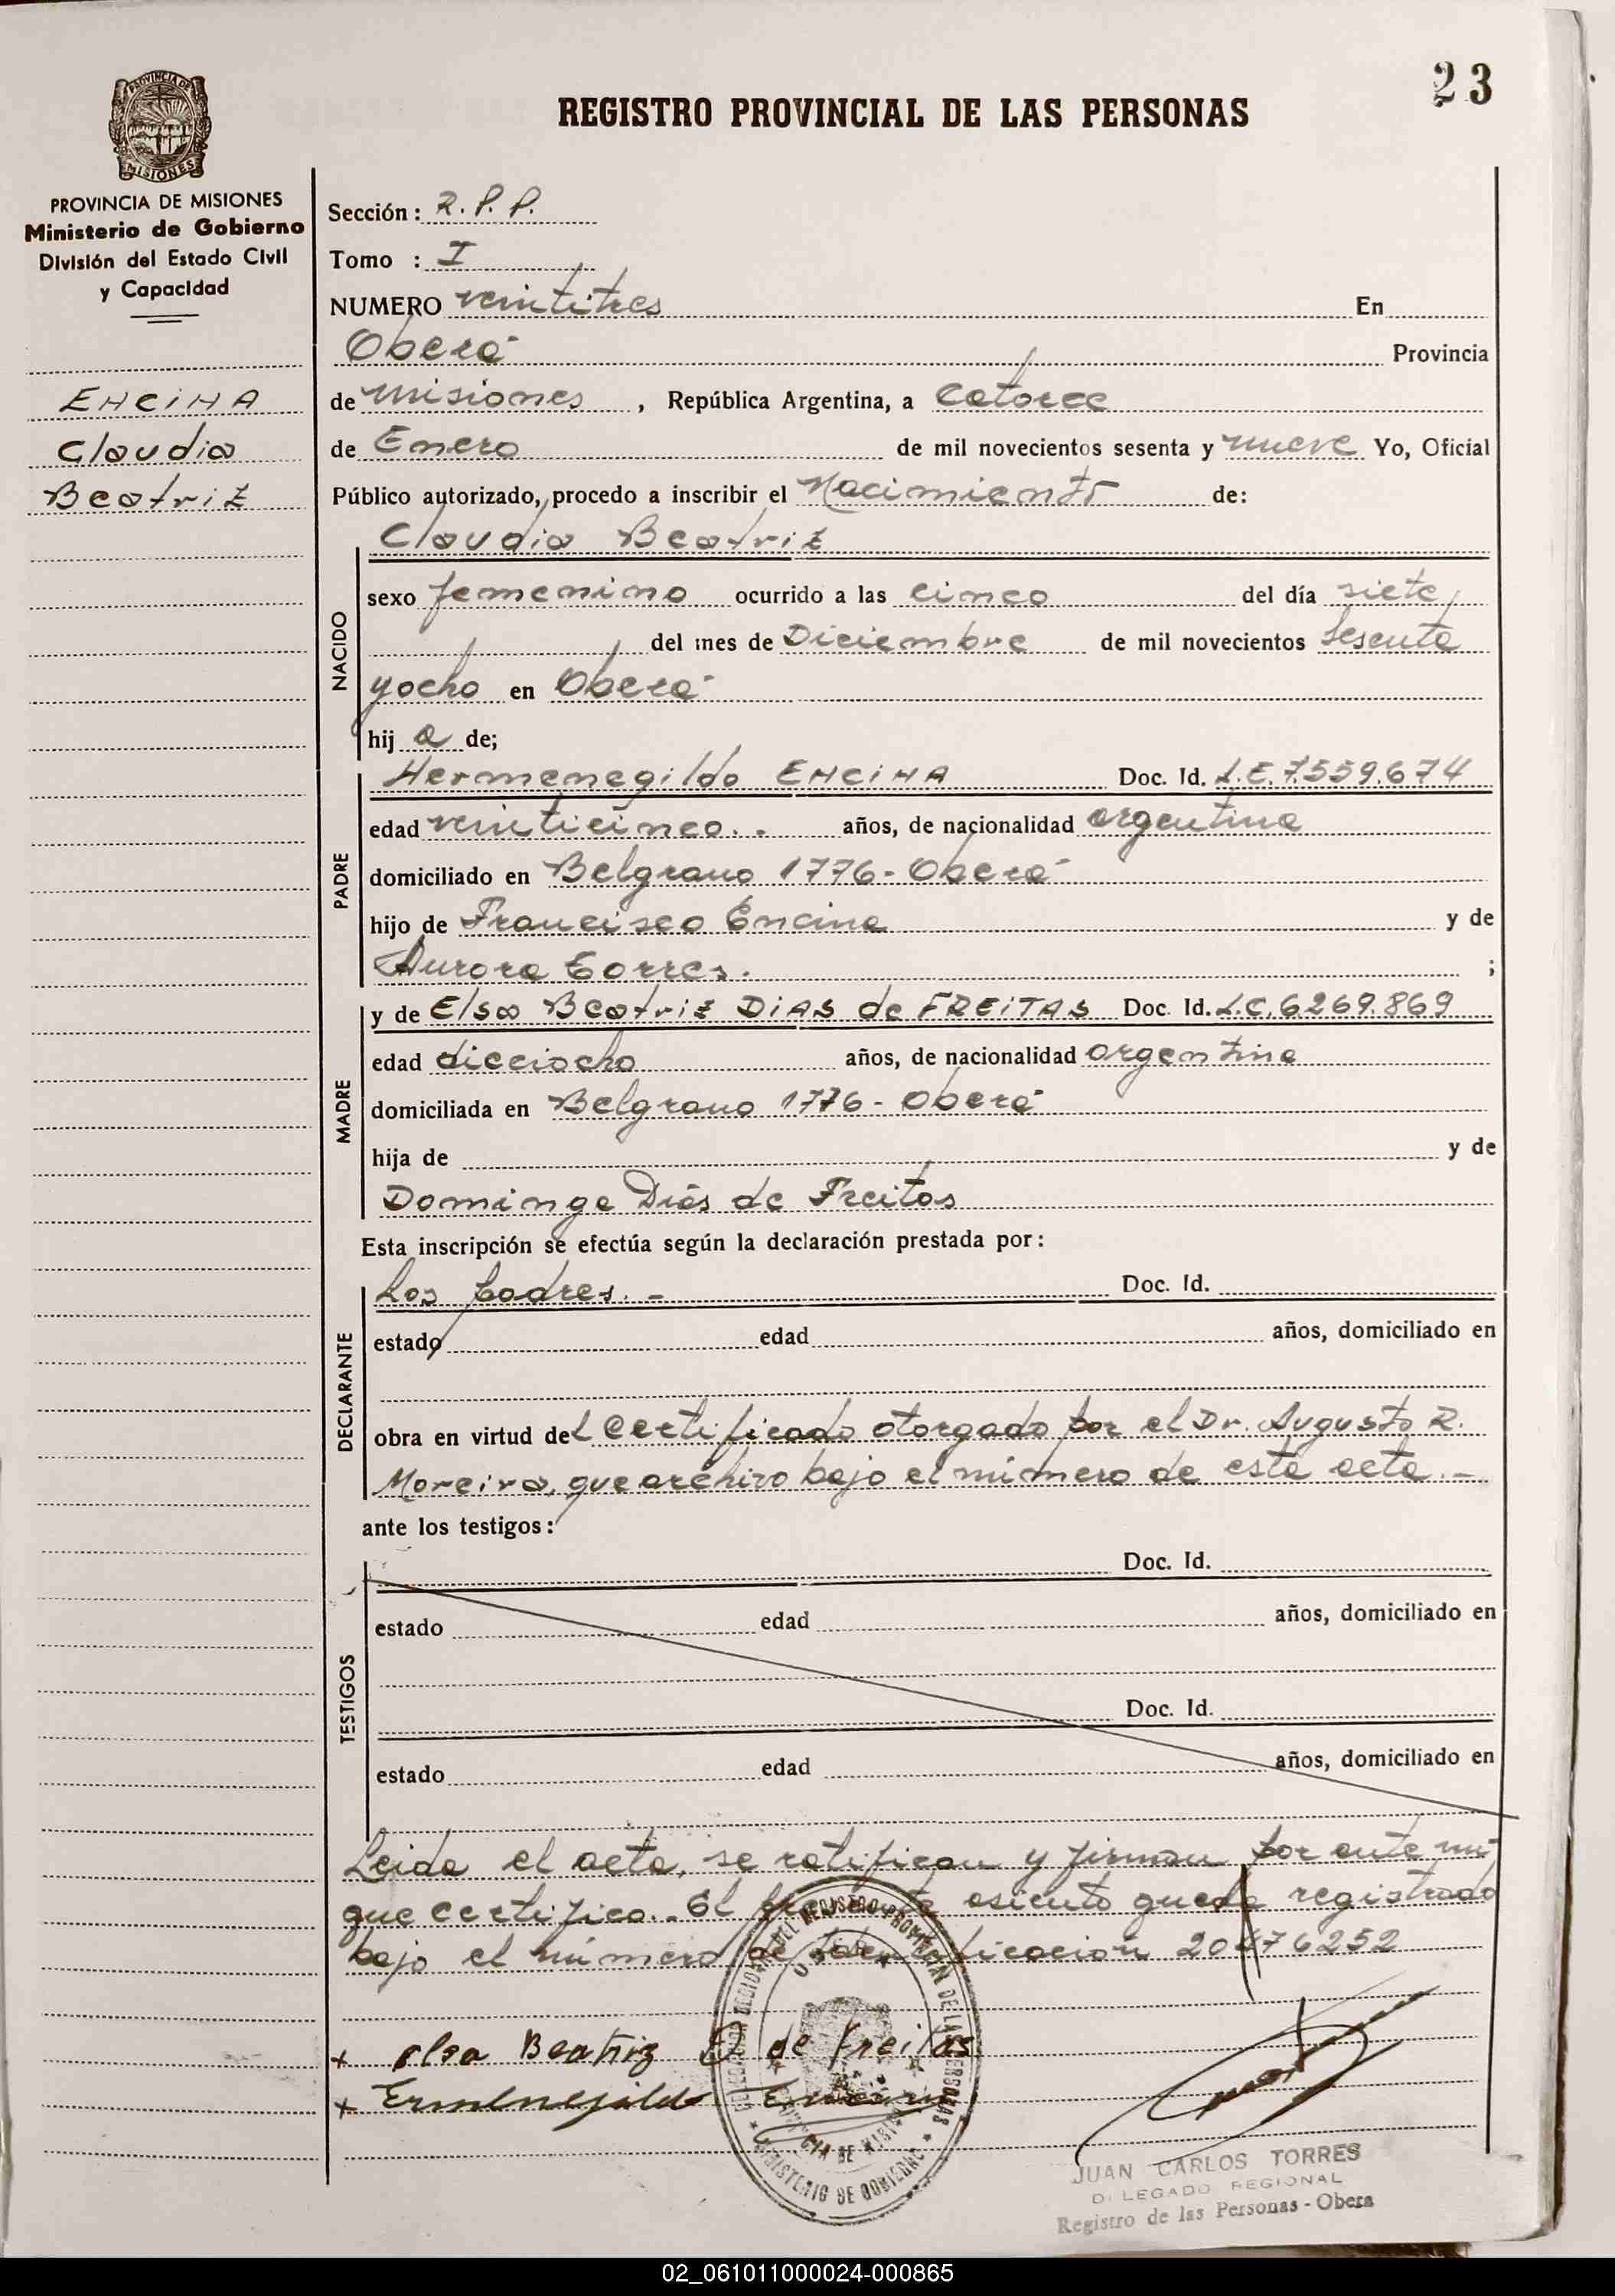 23
REGISTRO PROVINCIAL DE LAS PERSONAS
PROVINCIA DE MISIONES
PROVINCIA DE MISIONES
Ministerio de Gobierno
División del Estado Civil
y Capacidad
ENCINA
Claudia
Beatriz
Sección: R.P.P.
Tomo : I
NUMERO veintitres En
Oberá Provincia
de Misiones, República Argentina, a catorce
de Enero de mil novecientos sesenta y nueve Yo, Oficial
Público autorizado, procedo a inscribir el Nacimiento de:
Claudia Beatriz
NACIDO
sexo femenino ocurrido a las cinco del día siete
del mes de Diciembre de mil novecientos sesenta
y ocho en Oberá
hij a de;
PADRE
Hermenegildo ENCINA Doc. Id. L.E. 7.559.674
edad veinticinco.. años, de nacionalidad argentina
domiciliado en Belgrano 1776- Oberá
hijo de Francisco Encina y de
Aurora Torres. ;
MADRE
y de Elsa Beatriz DIAS de FREITAS Doc. Id. L.C. 6269.869
edad dieciocho años, de nacionalidad argentina
domiciliada en Belgrano 1776- Oberá
hija de y de
Dominga Dias de Freitas
Esta inscripción se efectúa según la declaración prestada por:
DECLARANTE
Los padres. - Doc. Id.
estado edad años, domiciliado en
obra en virtud del certificado otorgado por el Dr. Augusto R.
Moreira, que archivo bajo el número de esta acta.-
ante los testigos:
TESTIGOS
Doc. Id.
estado edad años, domiciliado en
Doc. Id.
estado edad años, domiciliado en
Leida el acta, se ratifican y firman por ante mi
que certifico.- El presente asiento queda registrado
bajo el número de identificación 20476252
+ elsa Beatriz D de Freitas
+ Ermenegildo Encina
DELEGACION REGIONAL DEL REGISTRO PROVINCIAL DE LAS PERSONAS
PROVINCIA DE MISIONES
MINISTERIO DE GOBIERNO
JUAN CARLOS TORRES
DELEGADO REGIONAL
Registro de las Personas - Obera
02_061011000024-000865